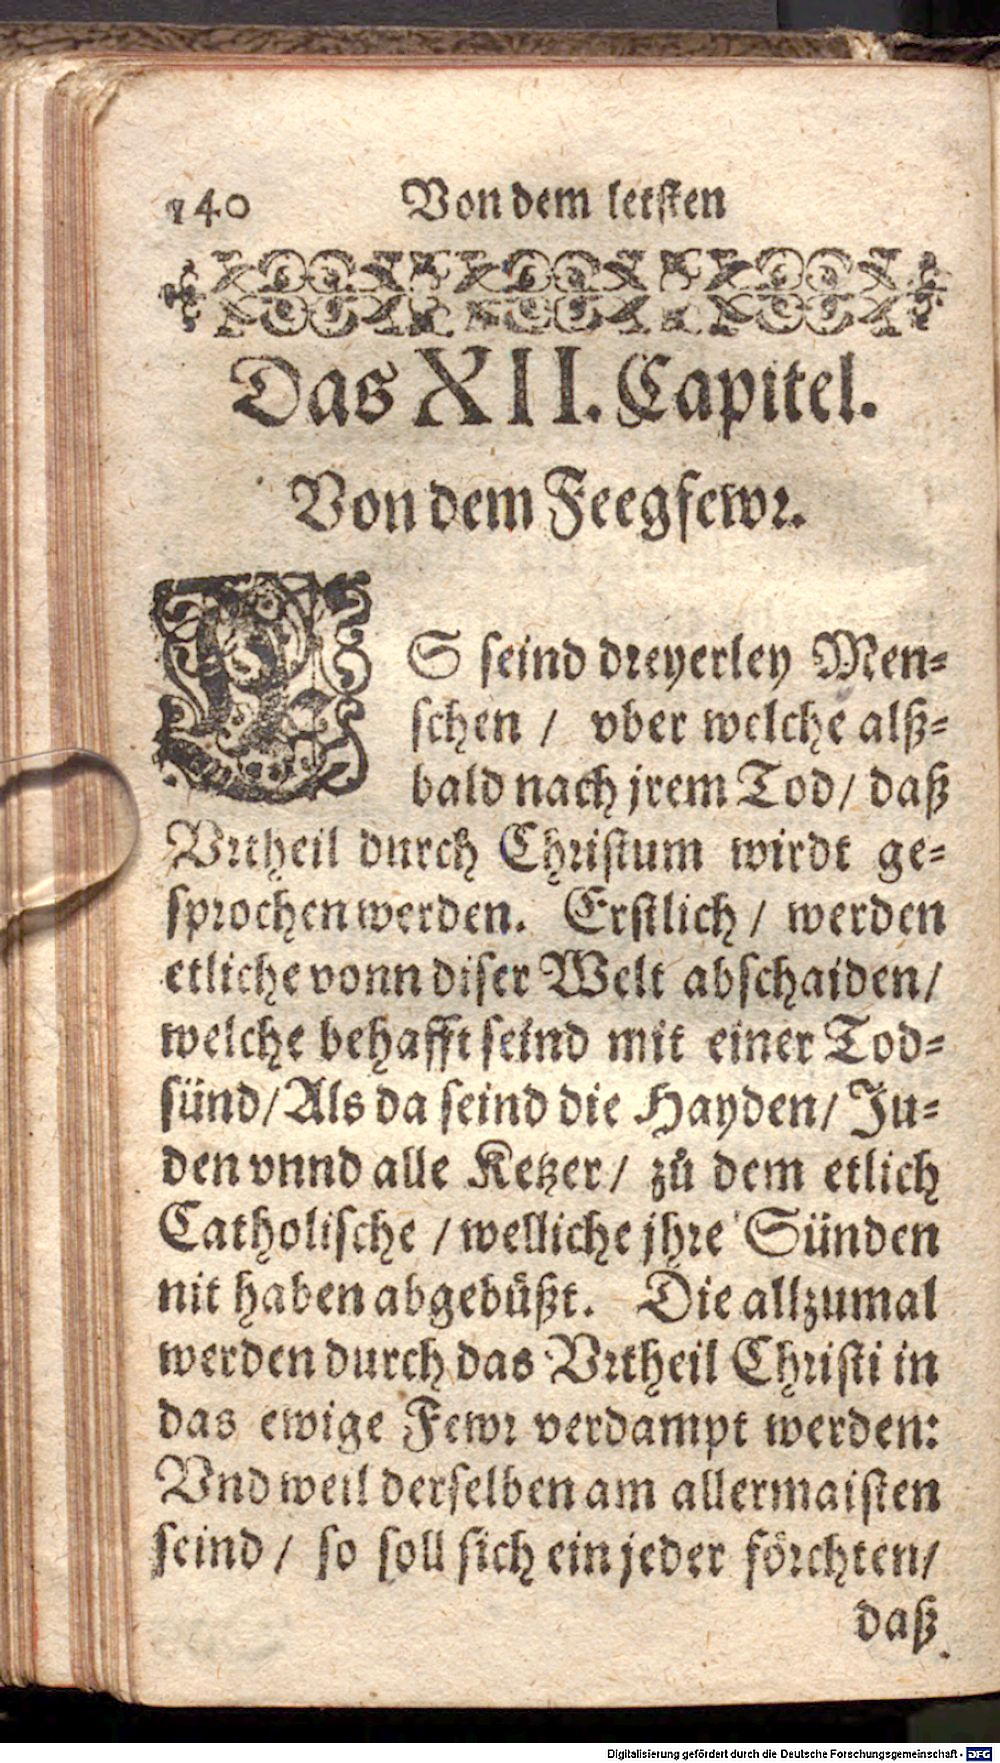 140 Von dem letsten
Das XII. Capitel.
Von dem Feegfewr.
ES seind dreyerley Men-
schen / vber welche alß-
bald nach jrem Tod / daß
Vrtheil durch Christum wirdt ge-
sprochen werden. Erstlich / werden
etliche vonn diser Welt abschaiden /
welche behafft seind mit einer Tod-
sünd / Als da seind die Hayden / Ju-
den vnnd alle Ketzer / zů dem etlich
Catholische / welliche jhre Sünden
nit haben abgebüßt. Die allzumal
werden durch das Vrtheil Christi in
das ewige Fewr verdampt werden:
Vnd weil derselben am allermaisten
seind / so soll sich ein jeder förchten /
daß
Digitalisierung gefördert durch die Deutsche Forschungsgemeinschaft - DFG